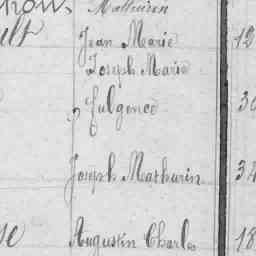 Mathurin
Jean Marie 12
Joseph Marie
Fulgence 30
Joseph Mathurin
Augustin Charles 18